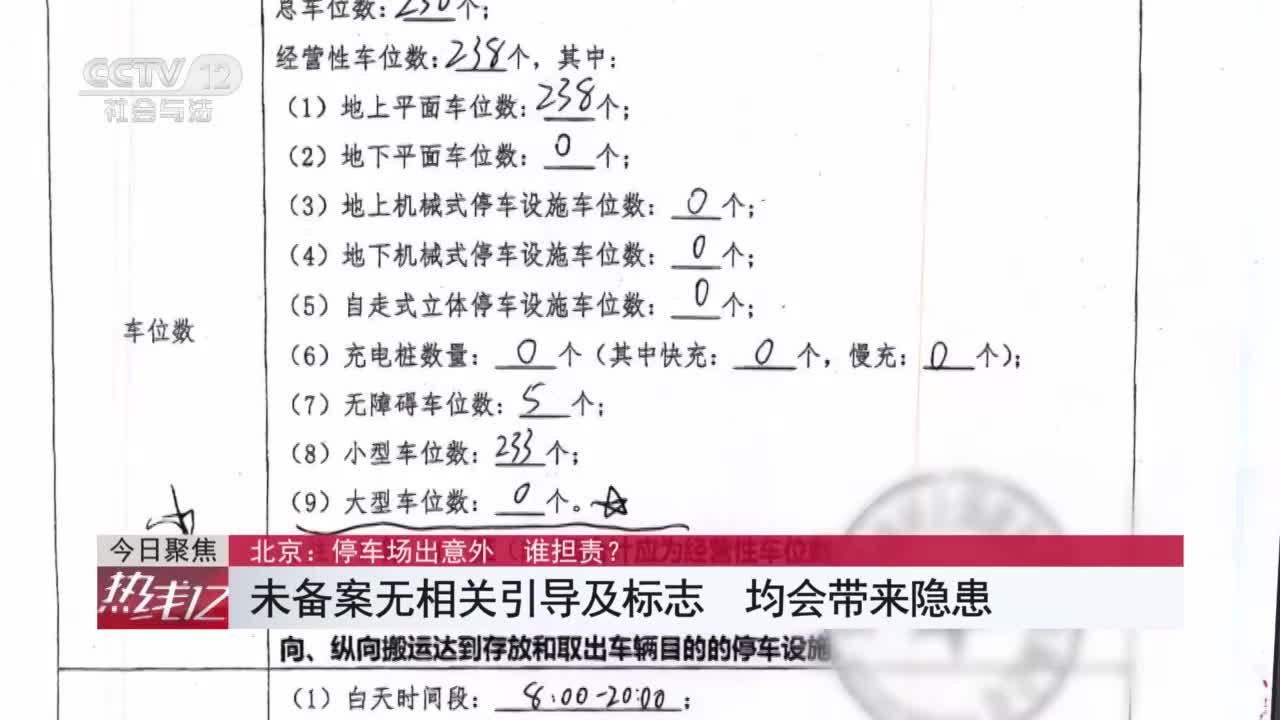 总车位数：238个；
经营性车位数：238个，其中：
CCTV 12
社会与法
（1）地上平面车位数：238个；
（2）地下平面车位数：0个；
（3）地上机械式停车设施车位数：0个；
（4）地下机械式停车设施车位数：0个；
（5）自走式立体停车设施车位数：0个；
车位数
（6）充电桩数量：0个（其中快充：0个，慢充：0个）；
（7）无障碍车位数：5个；
（8）小型车位数：233个；
（9）大型车位数：0个。☆
今日聚焦
北京：停车场出意外 谁担责？
计应为经营性车位数
热线12
未备案无相关引导及标志 均会带来隐患
向、纵向搬运达到存放和取出车辆目的的停车设施
（1）白天时间段：8:00-20:00；